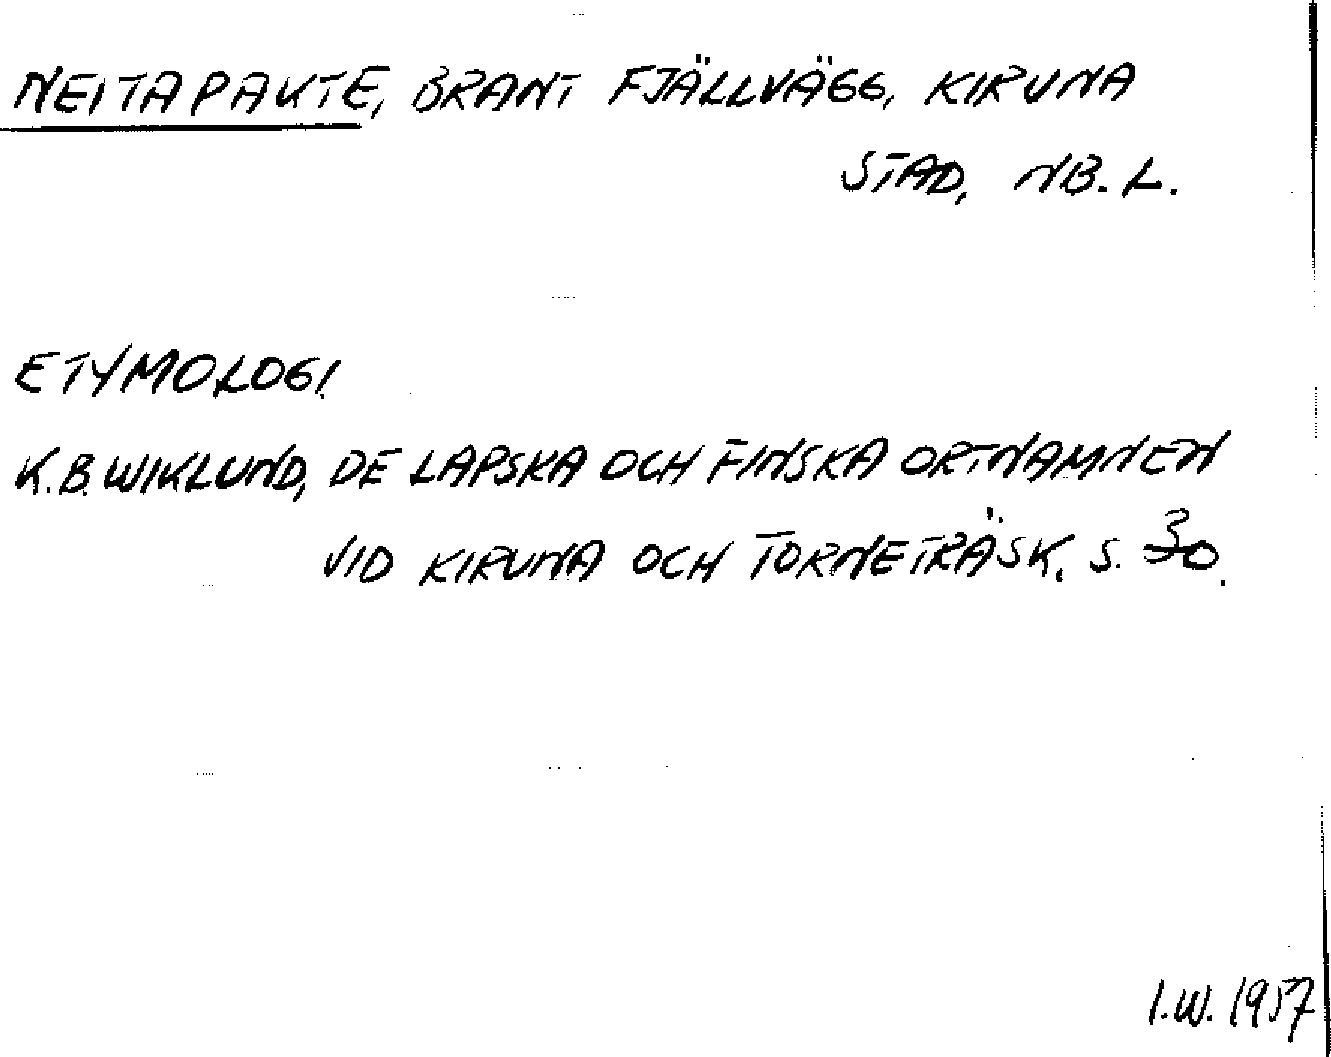 NEITAPAKTE, BRANT FJÄLLVÄGG, KIRUNA
STAD, NB. L.
ETYMOLOGI.
K.B. WIKLUND, DE LAPSKA OCH FINSKA ORTNAMNEN
VID KIRUNA OCH TORNETRÄSK. S. 30.
I.W. 1957